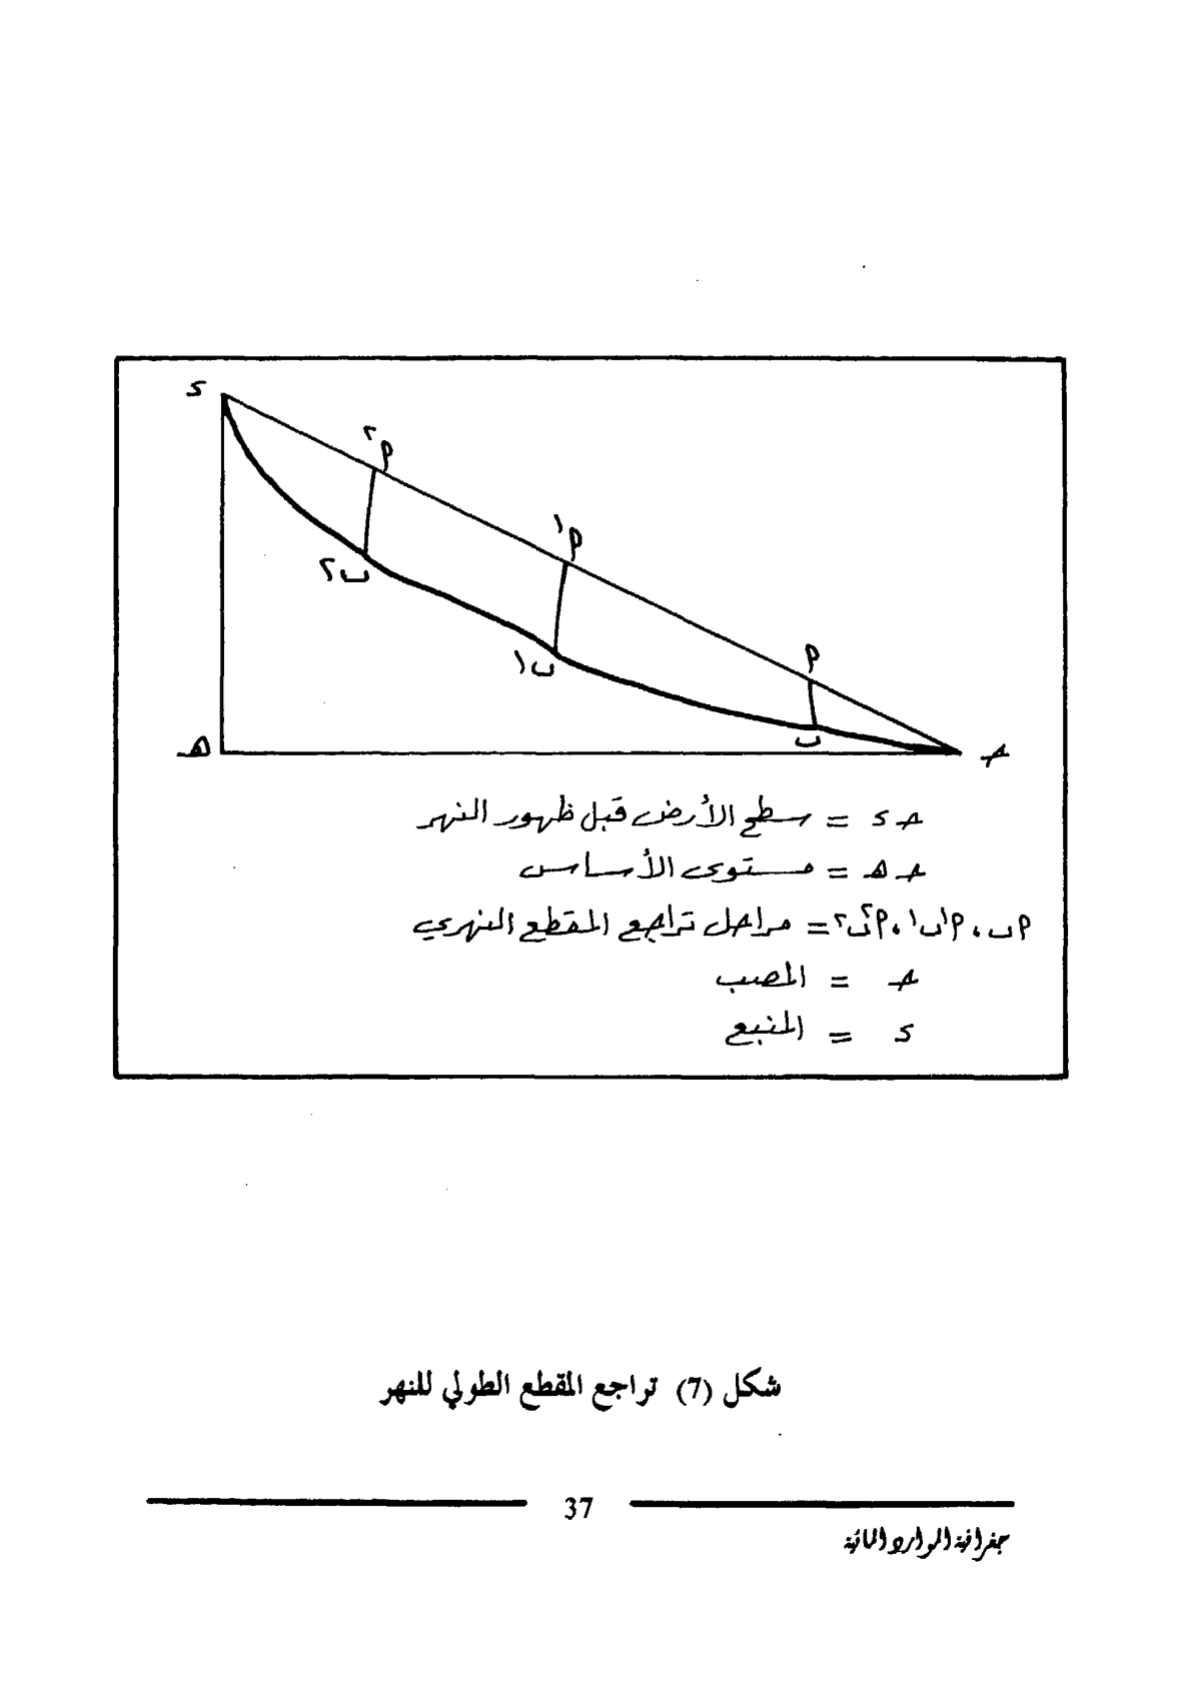 د
م٢
م١
م
ب٢
ب١
ب
هـ
جـ
جـ د = سطح الأرض قبل ظهور النهر
جـ هـ = مستوى الأساس
م ب ، م١ ب١ ، م٢ ب٢ = مراحل تراجع المقطع النهري
جـ = المصب
د = المنبع
شكل (7) تراجع المقطع الطولي للنهر
37
جغرافية الموارد المائية